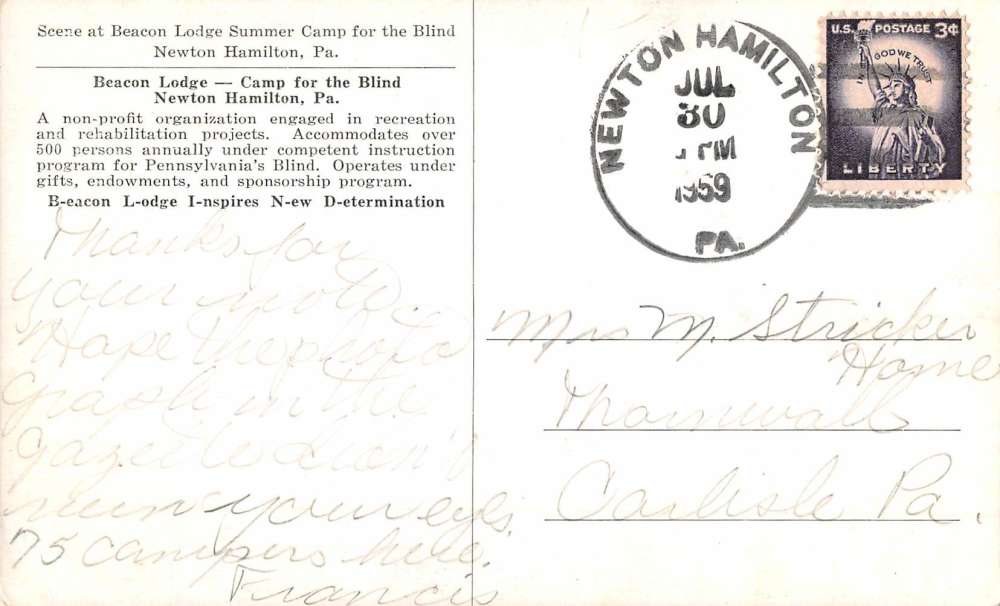 Scene at Beacon Lodge Summer Camp for the Blind
Newton Hamilton, Pa.
Beacon Lodge — Camp for the Blind
Newton Hamilton, Pa.
A non-profit organization engaged in recreation
and rehabilitation projects. Accommodates over
500 persons annually under competent instruction
program for Pennsylvania's Blind. Operates under
gifts, endowments, and sponsorship program.
B-eacon L-odge I-nspires N-ew D-etermination
Thanks for
your note.
Hope the photo
graph in the
Gazette didn't
ruin your eyes.
75 campers here.
Francis
NEWTON HAMILTON
JUL
30
PM
1959
PA.
U.S. POSTAGE 3¢
IN GOD WE TRUST
LIBERTY
Mrs M. Stricker
Home
Thornwall
Carlisle Pa.